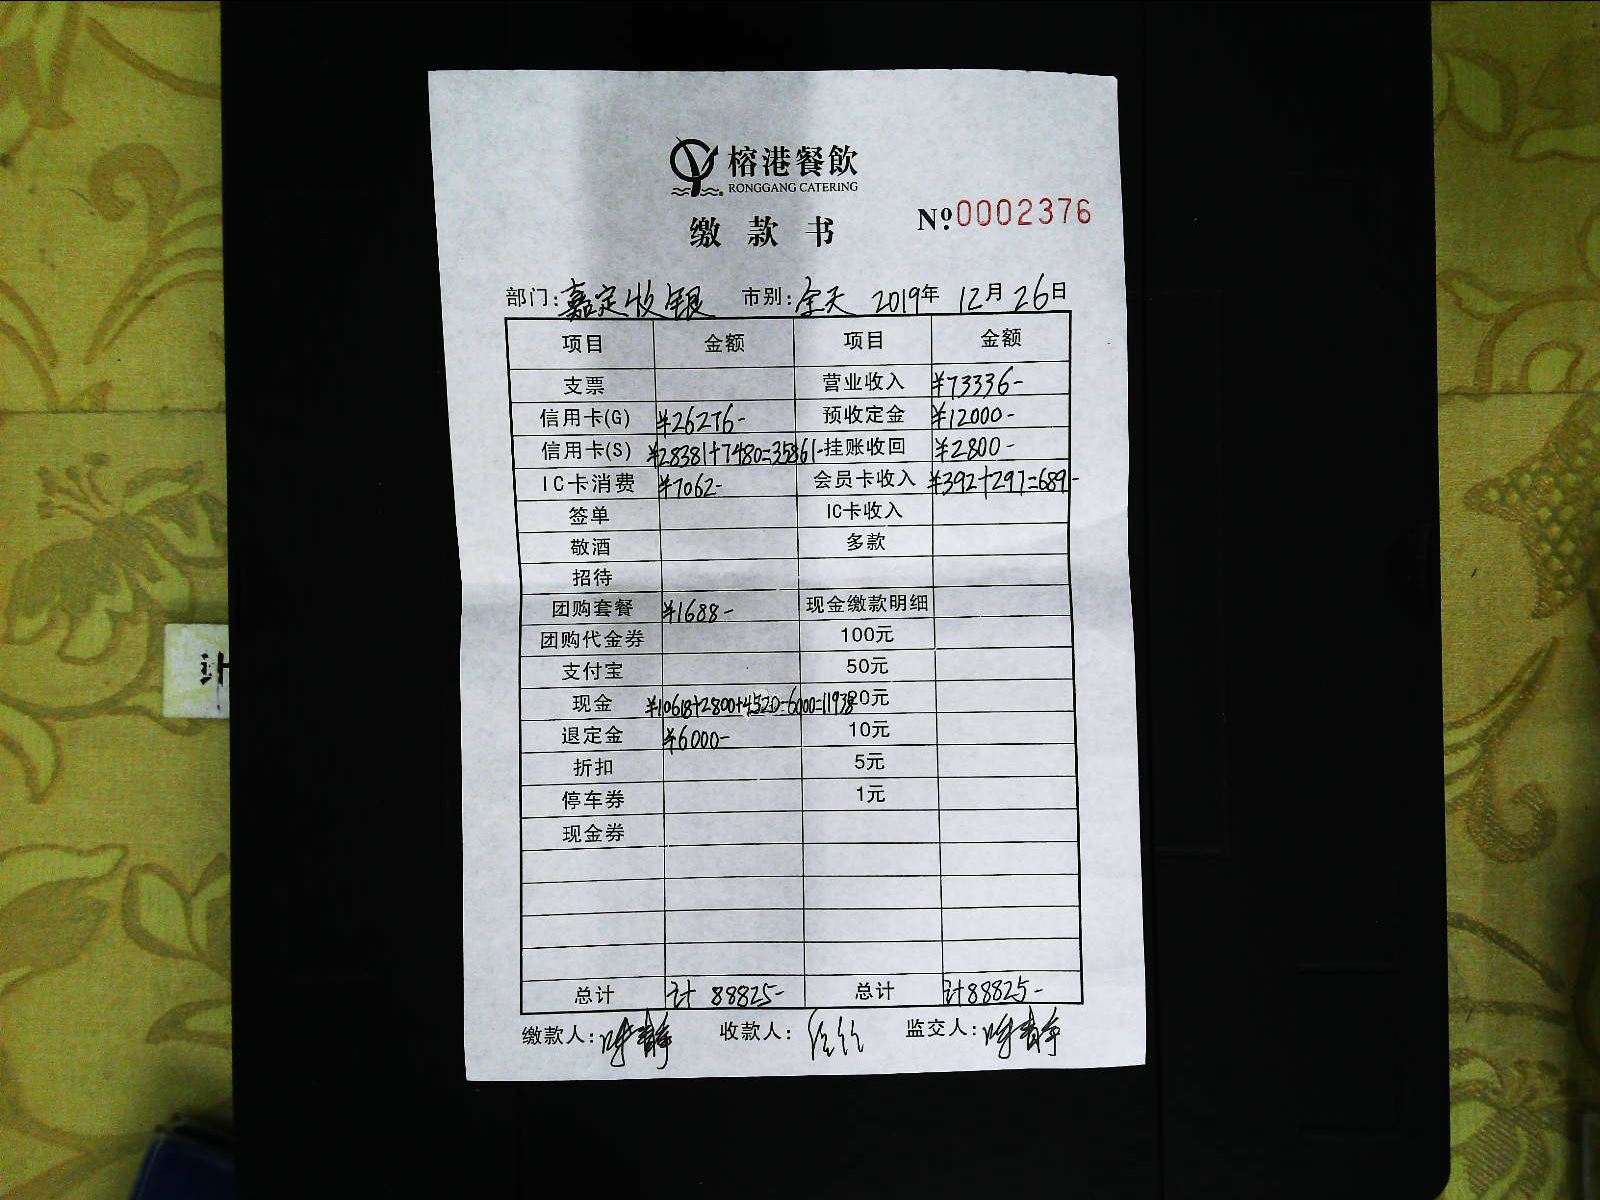 榕港餐飲
RONGGANG CATERING
缴款书 №0002376
部门:嘉定收银 市别:全天 2019年12月26日
项目 金额 项目 金额
支票 营业收入 ¥73336-
信用卡(G) ¥26276- 预收定金 ¥12000-
信用卡(S) ¥28381+7480=35861- 挂账收回 ¥2800-
IC卡消费 ¥7062- 会员卡收入 ¥392+297=689-
签单 IC卡收入
敬酒 多款
招待
团购套餐 ¥1688- 现金缴款明细
团购代金券 100元
支付宝 50元
现金 ¥10618+2800+4520-6000=11938 0元
退定金 ¥6000- 10元
折扣 5元
停车券 1元
现金券
总计 计 88825- 总计 计88825-
缴款人: 收款人: 监交人: